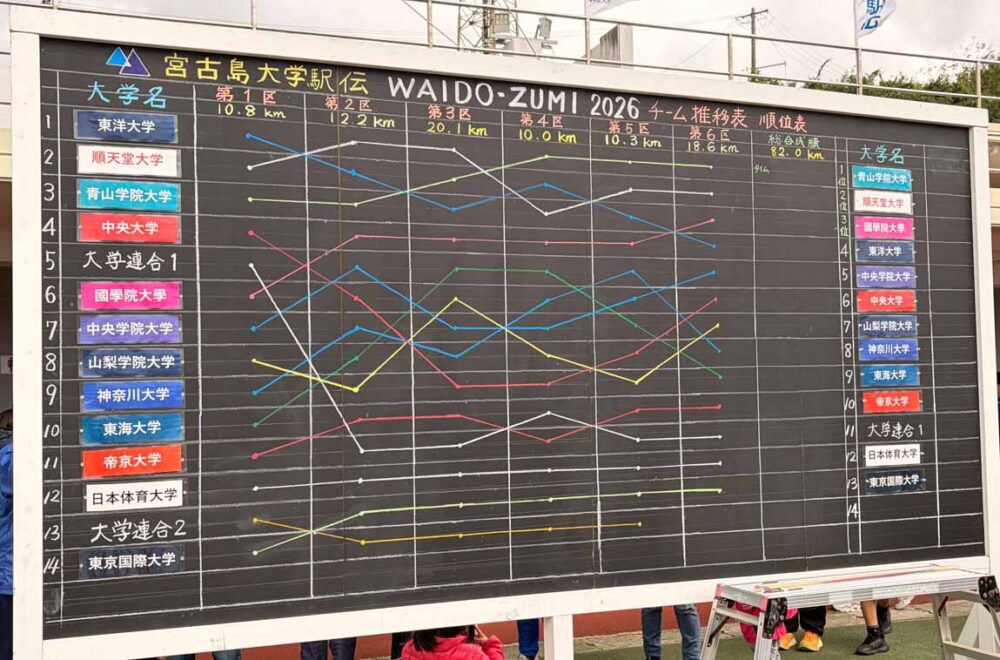 宮古島大学駅伝 WAIDO-ZUMI 2026 チーム推移表 順位表
大学名
第1区
10.8 km
第2区
12.2 km
第3区
20.1 km
第4区
10.0 km
第5区
10.3 km
第6区
18.6 km
総合成績
82.0 km
タイム
大学名
1 東洋大学
2 順天堂大学
3 青山学院大学
4 中央大学
5 大学連合1
6 國學院大學
7 中央学院大学
8 山梨学院大学
9 神奈川大学
10 東海大学
11 帝京大学
12 日本体育大学
13 大学連合2
14 東京国際大学
1位 青山学院大学
2位 順天堂大学
3位 國學院大學
4 東洋大学
5 中央学院大学
6 中央大学
7 山梨学院大学
8 神奈川大学
9 東海大学
10 帝京大学
11 大学連合1
12 日本体育大学
13 東京国際大学
14